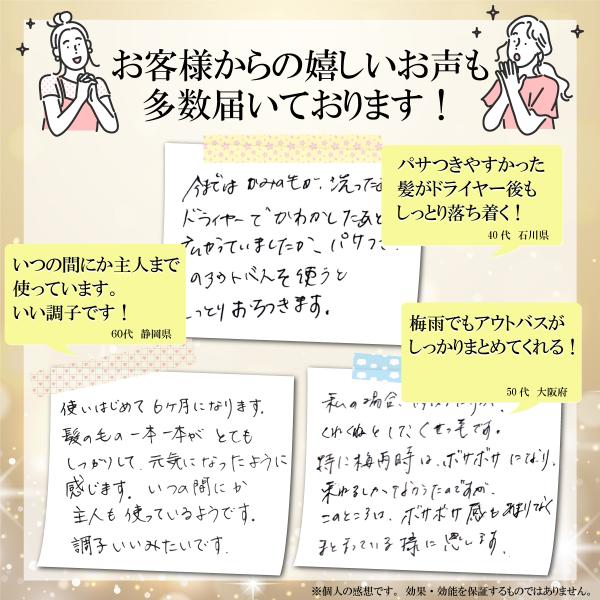 お客様からの嬉しいお声も
多数届いております！
パサつきやすかった
髪がドライヤー後も
しっとり落ち着く！
40代 石川県
今までは かみのもが、洗った
ドライヤーでかわかしたあと
ひろがっていましたが、パサつき
のアウトバスを使うと
しっとり おちつきます。
いつの間にか主人まで
使っています。
いい調子です！
60代 静岡県
梅雨でもアウトバスが
しっかりまとめてくれる！
50代 大阪府
使いはじめて 6ヶ月になります。
髪の毛の一本一本が とても
しっかりして、元気になったように
感じます。いつの間にか
主人も使っているようです。
調子いいみたいです。
私の場合、
くねくねとした、くせっ毛です。
特に梅雨時は、ボサボサになり、
のですが、
このところは、ボサボサ感もあまりなく
まとまっている様に思います。
※個人の感想です。 効果・効能を保証するものではありません。